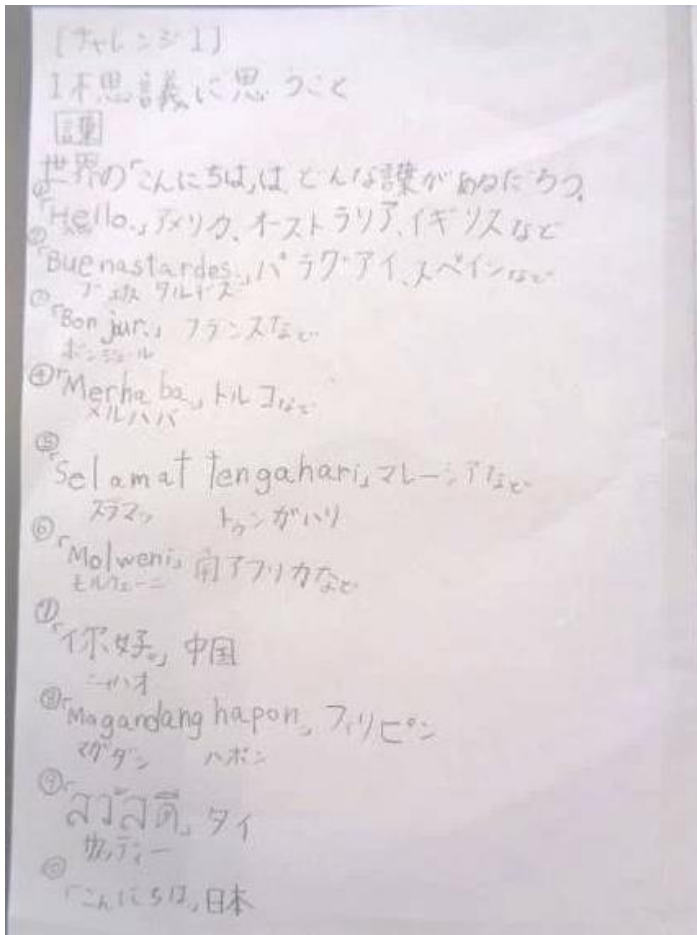 [チャレンジ1]
1不思議に思うこと
課
世界の「こんにちは」は、どんな言葉があるだろう。
①「Hello.」アメリカ、オーストラリア、イギリスなど
②「Buenastardes.」パラグアイ、スペインなど
ブエナス タルデス
③「Bon jur.」フランスなど
ボンジュール
④「Merhaba」トルコなど
メルハバ
⑤「Selamat tengahari」マレーシアなど
スラマッ トゥンガハリ
⑥「Molweni」南アフリカなど
モルウェーニ
⑦「你好。」中国
ニーハオ
⑧「Magandang hapon」フィリピン
マガダン ハポン
⑨「สวัสดี」タイ
サワッディー
⑩「こんにちは」日本